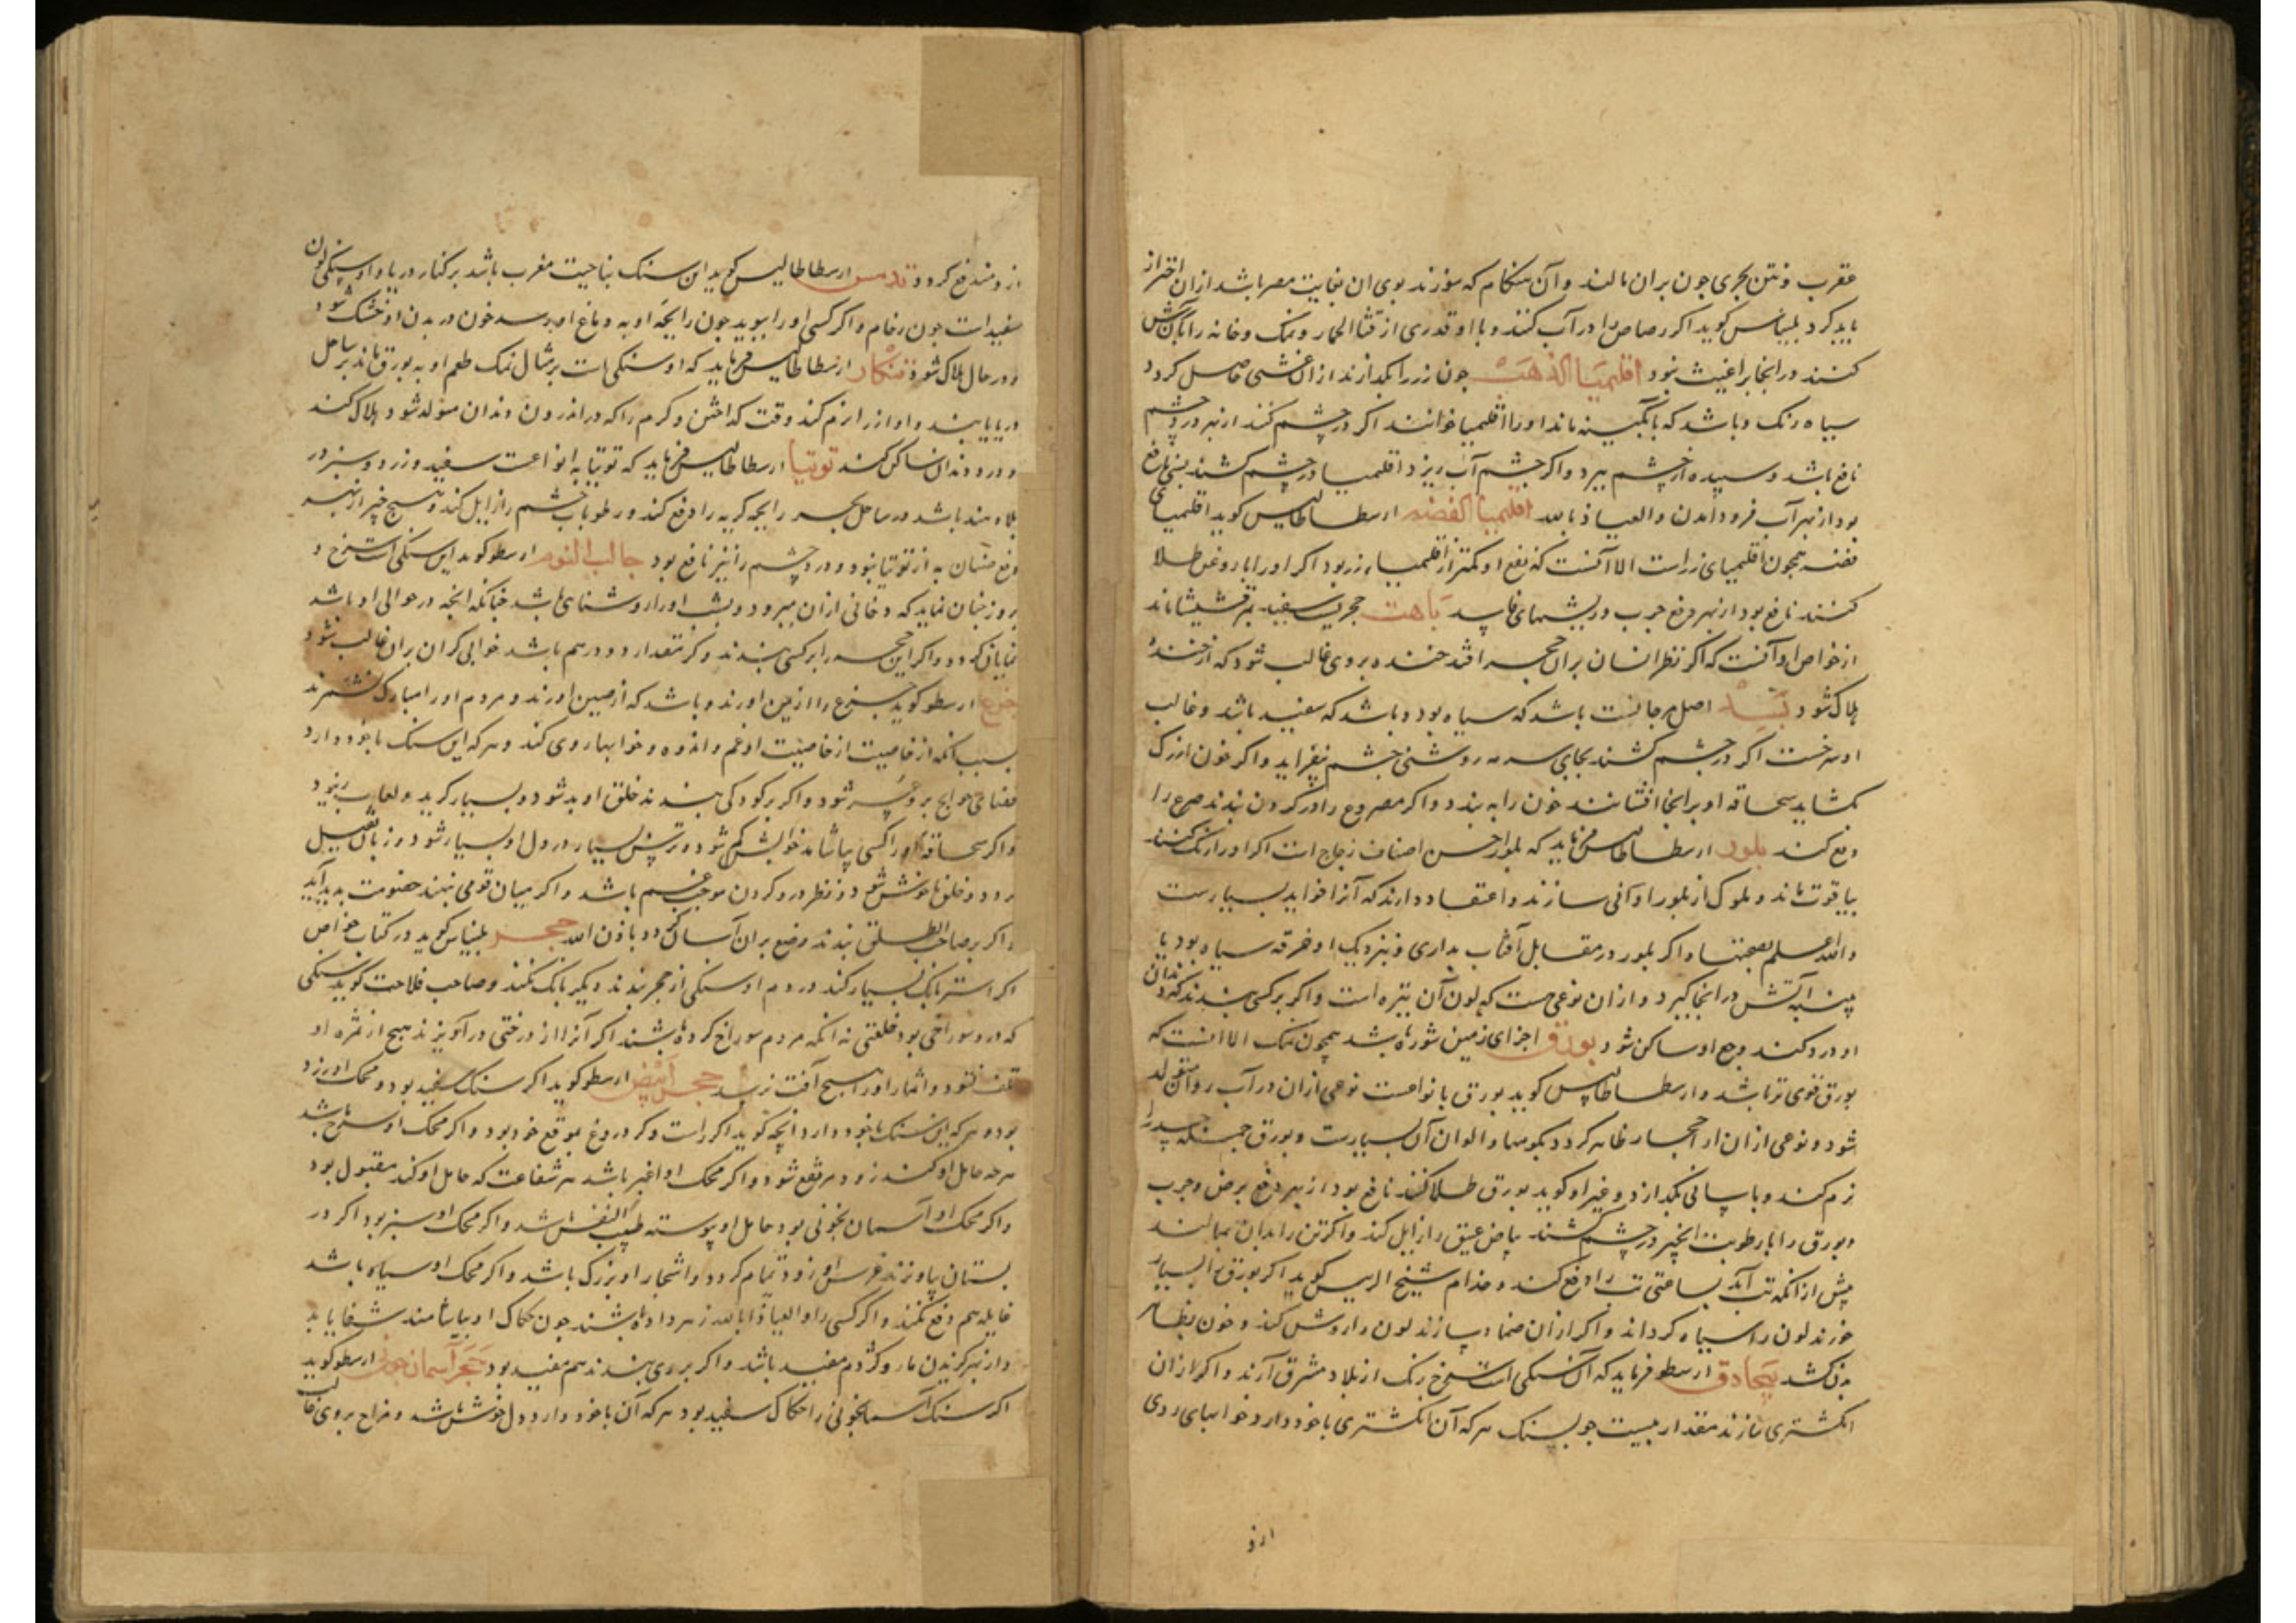 عقرب و نتن بحری چون بران مالند و آن هنکام که سوزند بوی ان بغایت مضر باشد ازان احتراز
باید کرد بلیناس کوید اکر رصاص را در آب کنند و با او قدری از قثا الحمار و نمک و خانه را بآن رش
کنند در انجا براغیث نبود اقلیمیا الذهب چون زر را بکدازند ازان غشی حاصل کردد
سیاه رنک و باشد که بآبکینه ماند او را اقلیمیا خوانند اکر در چشم کنند از بهر درد چشم
نافع باشد و سپیده از چشم ببرد و اکر چشم آب ریزد اقلیمیا در چشم کشند نافع
بود از بهر آب فرود آمدن والعیاذ بالله اقلیمیا الفضه ارسطاطالیس کوید اقلیمیای
فضه همچون اقلیمیای زر است الا آنست که نفع او کمتر از اقلیمیاء زر بود اکر او را با روغن طلا
کنند نافع بود از بهر دفع جرب و ریشهای فاسد باهت حجریست سفید بمرقشیشا ماند
از خواص او آنست که اکر نظر انسان بران حجر افتد خنده بروی غالب شود که از خنده
هلاک شود بسد اصل مرجانست باشد که سیاه بود و باشد که سفید باشد و غالب
او سرخست اکر در چشم کشند بجای سرمه روشنی چشم بیفزاید و اکر خون از رک
بکشاید سحاقه او بر انجا افشانند خون را به بندد و اکر مصروع را در کردن بندند صرع را
دفع کند بلور ارسطاطالیس فرماید که بلور احسن اصناف زجاج است اکر او را رنک کنند
بیاقوت ماند و ملوک از بلور اوانی سازند و اعتقاد دارند که آنرا فواید بسیارست
والله اعلم بصحتها و اکر بلور در مقابل آفتاب بداری و نزدیک او خرقه سیاه بود یا
پنبه آتش در انجا کیرد و ازان نوعی هست که لون آن تیره است و اکر بر کسی بندند که دندان
او درد کند وجع او ساکن شود بورق اجزای زمین شوره باشد همچون نمک الا آنست که
بورق قوی تر باشد و ارسطاطالیس کوید بورق بانواعست نوعی ازان در آب روان متولد
شود و نوعی ازان از احجار ظاهر کردد بکوهها و الوان آن بسیارست و بورق جمله جسدها را
نرم کند و بآسانی بکدازد و غیر او کوید بورق طلا کنند نافع بود از بهر دفع برص و جرب
و بورق را با رطوبت انجیر در چشم کشند بیاض عتیق را زایل کند و اکر تن را بدان بمالند
پیش از آنکه تب آید بساعتی تب را دفع کند و جذام شیخ الرییس کوید اکر بورق را بسیار
خورند لون را سیاه کرداند و اکر ازان ضماد سازند لون را روشن کند و خون بظاهر
بدن کشد بیجادق ارسطو فرماید که آن سنکی است سرخ رنک از بلاد مشرق آرند و اکر ازان
انکشتری سازند مقدار بیست جو بسنک هر که آن انکشتری با خود دارد خوابهای ردی
ازو
ازو مندفع کردد تدمس ارسطاطالیس کوید این سنک بناحیت مغرب باشد بر کنار دریا و او سنکی لون
سفید است چون رخام و اکر کسی او را ببوید چون رایحه او به دماغ او برسد خون در بدن او خشک شود
و در حال هلاک شود تنکار ارسطاطالیس فرماید که او سنکی است بر مثال نمک طعم او به بورق ماند بر ساحل
دریا یابند و او زر را نرم کند و کرم را که در اندرون دندان متولد شود هلاک کند
و درد دندان ساکن کند توتیا ارسطاطالیس فرماید که توتیا به انواعست سفید و زرد و سبز در
بلاد هند باشد در ساحل بحر رایحه کریه را دفع کند و رطوبات چشم را زایل کند و هیچ چیز از بهر
دفع صنان به از توتیا نبود و درد چشم را نیز نافع بود جالب النوم ارسطو کوید این سنکی است سرخ و
بروز چنان نماید که دخانی ازان میرود و بشب او را روشنایی باشد چنانکه انچه در حوالی او باشد
نمایان کردد و اکر این حجر را بر کسی بندند و کر مقدار دو درهم باشد خوابی کران بران غالب شود
جزع ارسطو کوید جزع را از یمن اورند و باشد که از چین اورند و مردم او را مبارک نشمرند
بسبب انکه از خاصیت او غم و اندوه و خوابهاء ردی کند و هر که این سنک با خود دارد
قضاء حوایج برو عسر شود و اکر بر کودکی بندند خلق او بد شود و بسیار کرید و لعاب ریزد
و اکر سحاقه او را کسی بیاشاماند خوابش کم شود و ترس بسیار در دل او بسیار شود و زبان ثقیل
شود و خلق ناخوش شود و نظر درو کردن موجب غم باشد و اکر میان قومی نهند خصومت پدید آید
و اکر بر صاحب الطلق بندند وضع بران آسان کردد باذن الله حجر بلیناس کوید در کتاب خواص
اکر استر بانک بسیار کند در دم او سنکی از حجر بندند دیکر بانک نکند و صاحب فلاحت کوید سنکی
که درو سوراخی بود خلقتی نه انکه مردم سوراخ کرده باشند اکر آنرا از درختی در آویزند هیچ از ثمره او
تلف نشود و اثمار او را هیچ آفت نرسد حجر ابیض ارسطو کوید اکر سنک سفید بود و محک او زرد
بود و هر که این سنک با خود دارد انچه کوید اکر راست و کر دروغ بموقع خود بود و اکر محک او سرخ باشد
هر چه حامل او کند زود مرتفع شود و اکر محک او اغبر باشد هر شفاعت که حامل او کند مقبول بود
و اکر محک او آسمان بخونی بود حامل او پیوسته طیب النفس باشد و اکر محک او سبز بود اکر در
بستان بیاویزند غرس او زود تمام کردد و اشجار او بزرک باشد و اکر محک او سیاه باشد
غایله سم دفع کند و اکر کسی را والعیاذ بالله زهر داده باشند چون حکاک او بیاشامند شفا یابد
و از بهر کزیدن مار و کژدم مفید باشد و اکر بروی بندند هم مفید بود حجر آسمان جونی ارسطو کوید
اکر سنک آسمانجونی را حکاک سفید بود هر که آن با خود دارد دل خوش باشد و فراح بروی غالب